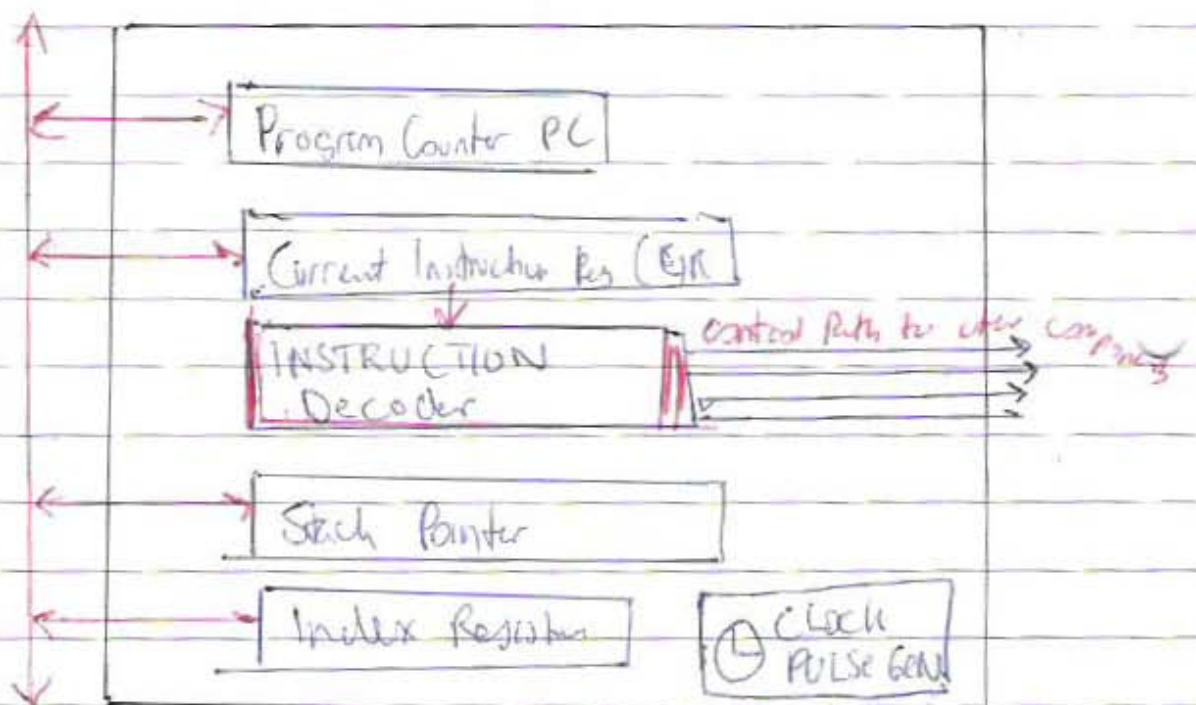 Program Counter PC
Current Instruction Reg (CIR
INSTRUCTION
Decoder
Control Path to other components
Stack Pointer
Index Registers
CLOCK
PULSE GEN